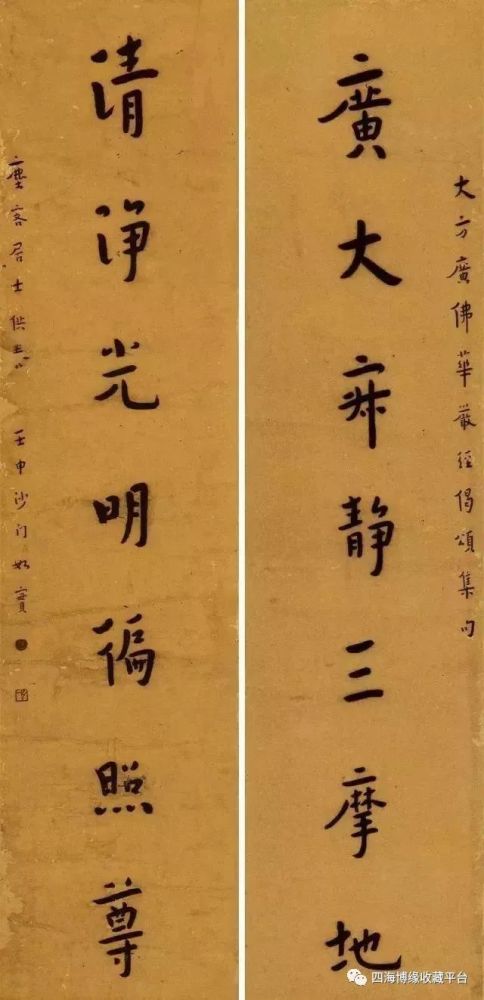 大方廣佛華嚴經偈頌集句
廣大寂静三摩地
清浄光明徧照尊
塵客居士供養 壬申沙门如實
四海博缘收藏平台